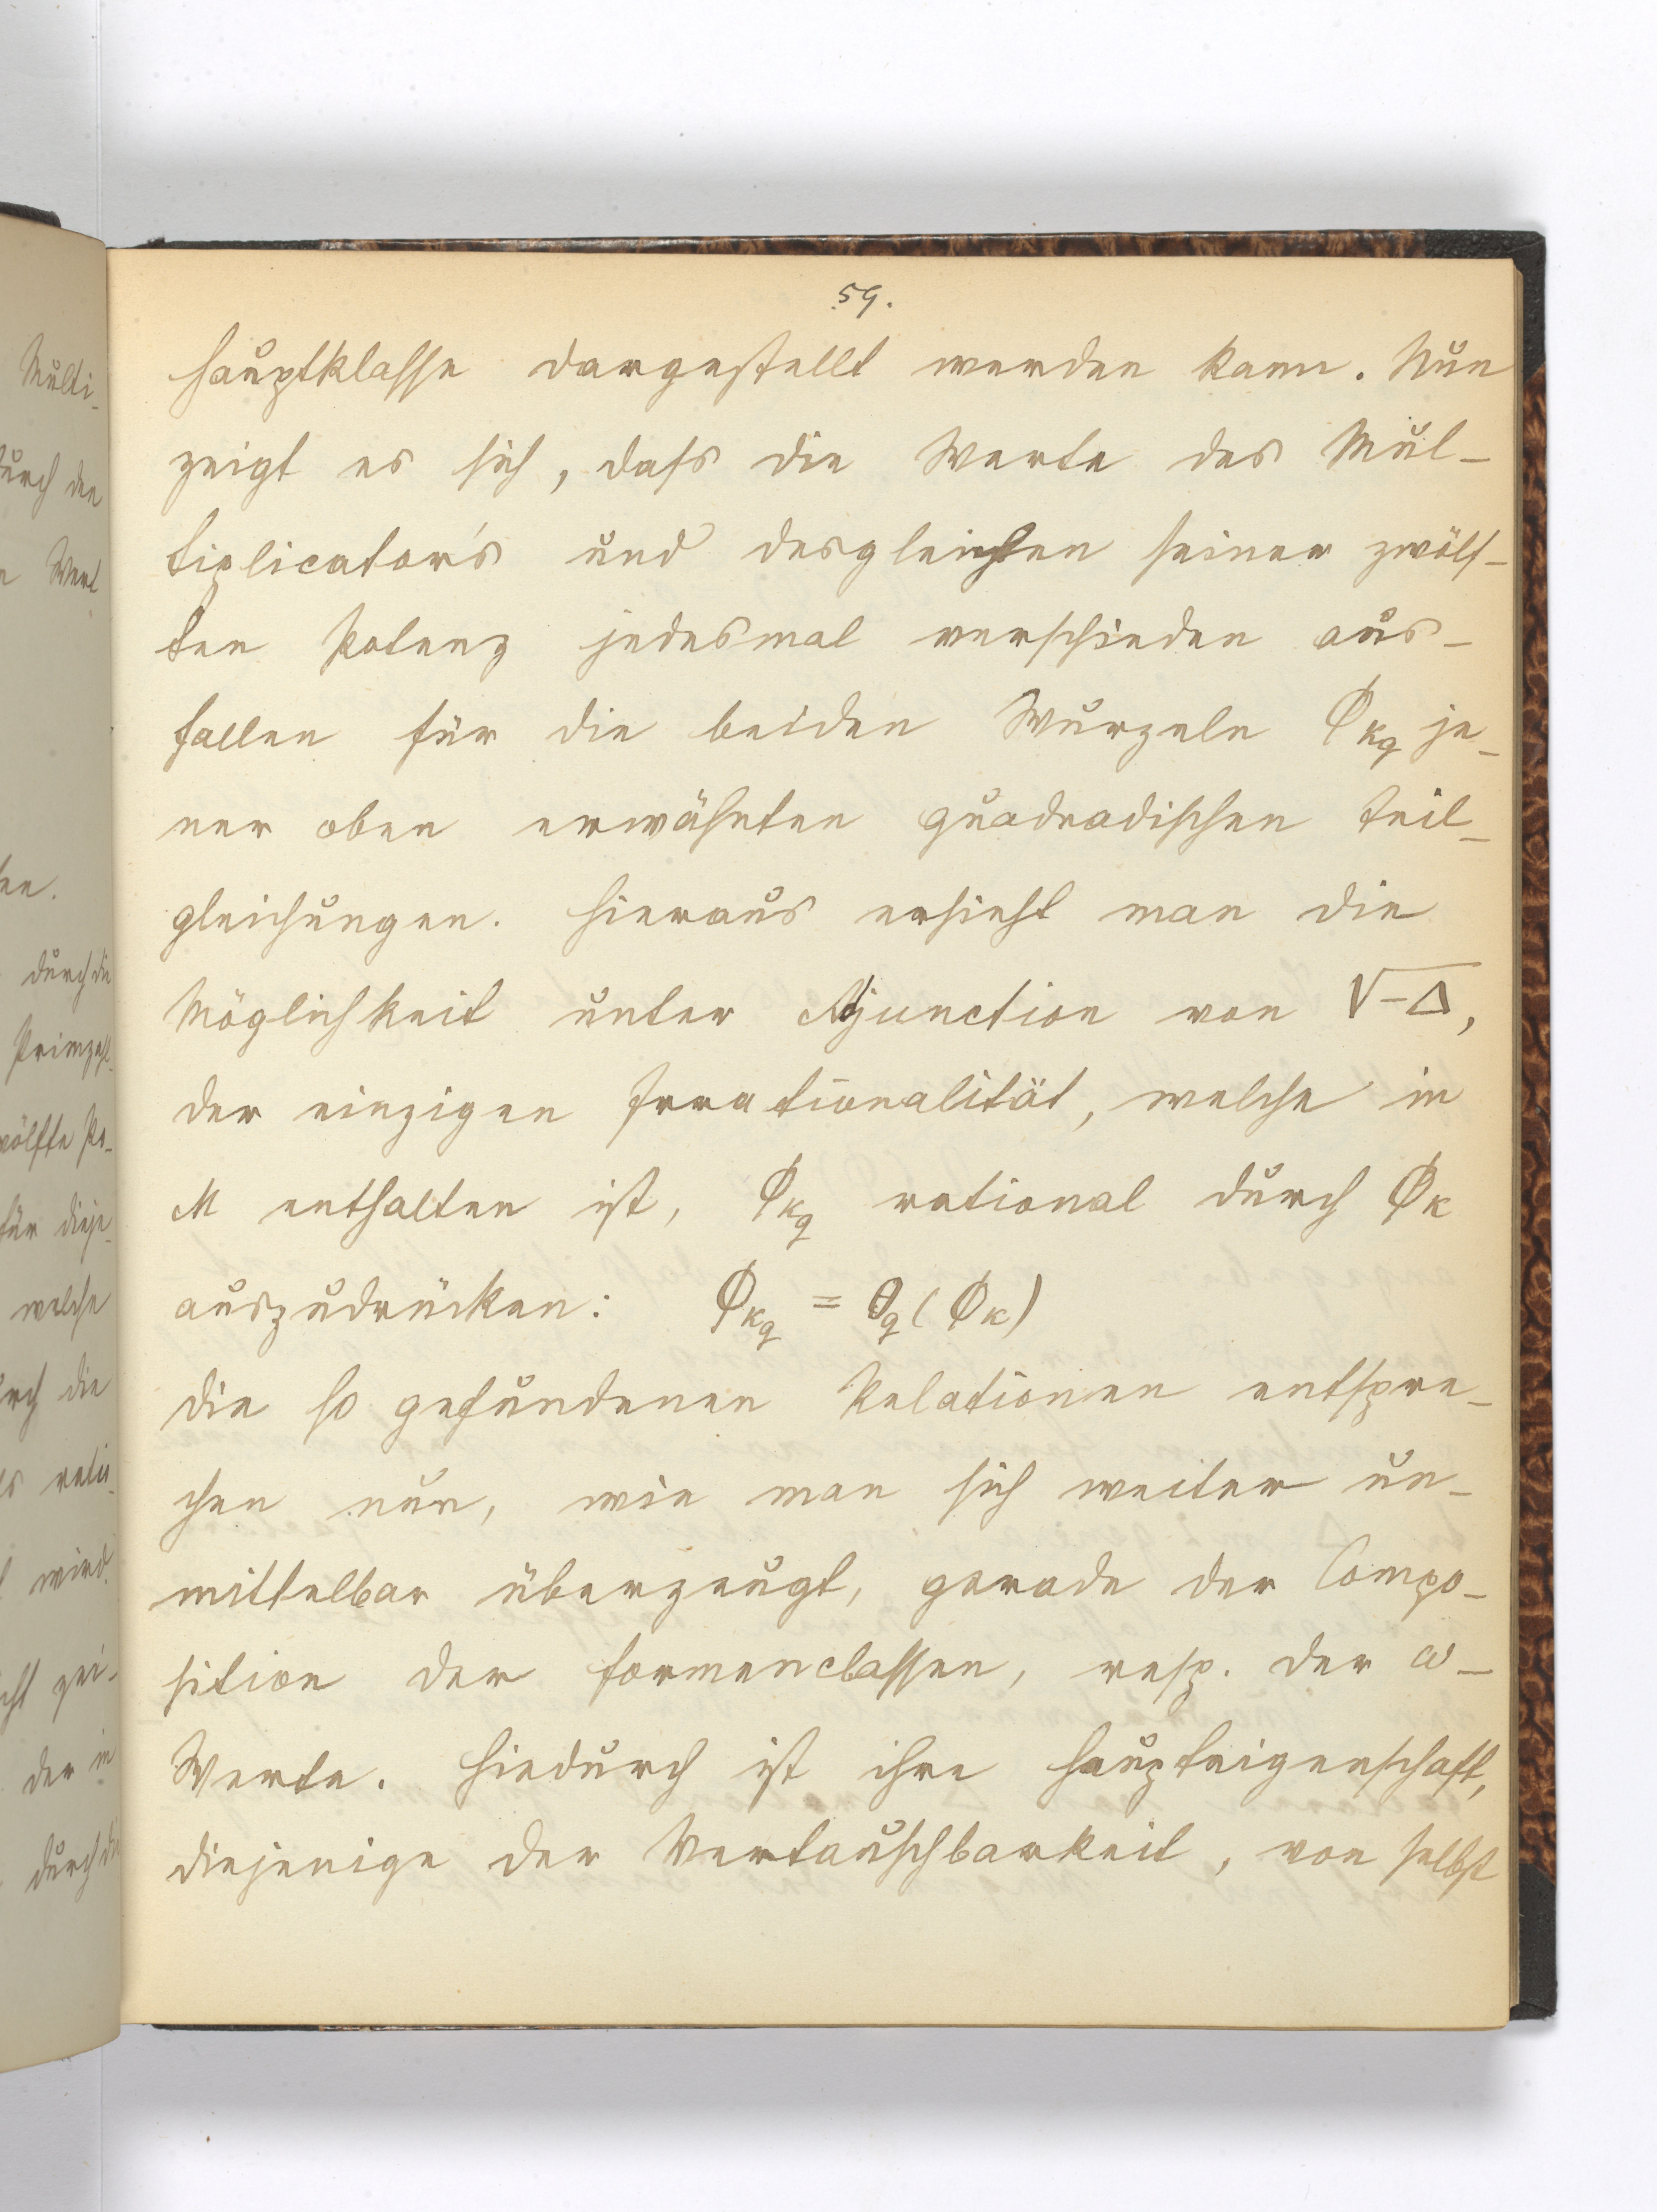 59.
Hauptklasse dargestellt werden kann. Nun
zeigt es sich, dass die Werte des Mul-
tiplicators und desgleichen seiner zwölf-
ten Potenz jedesmal verschieden aus-
fallen für die beiden Wurzeln ϕ_{k_q} je-
ner oben erwähnten quadradischen Teil-
gleichungen. Hieraus ersieht man die
Möglichkeit unter Adjunction von √-Δ,
der einzigen Irrationalität, welche in
M enthalten ist, ϕ_{k_q} rational durch ϕ_k
auszudrücken: ϕ_{k_q} = θ_q(ϕ_k)
Die so gefundenen Relationen entspre-
chen nun, wie man sich weiter un-
mittelbar überzeugt, gerade der Compo-
sition der Formenclassen, resp. der ω-
Werte. Hiedurch ist ihre Haupteigenschaft,
diejenige der Vertauschbarkeit, von selbst
Multi-
durch den
Wert
durch die
Primzahl
zwölfte Po-
für dieje-
welche
durch die
wird.
der in
durch die